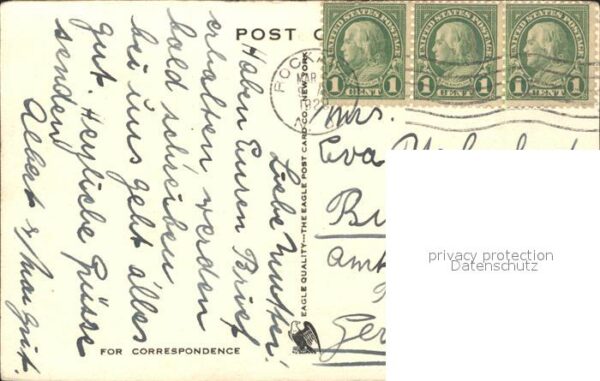 POST C
UNITED STATES POSTAGE
1 CENT 1
UNITED STATES POSTAGE
1 CENT 1
UNITED STATES POSTAGE
1 CENT 1
MAR
Liebe Mutter!
Haben Euren Brief
erhalten werden
bald schreiben
bei uns geht alles
gut. Herzliche Grüsse
senden
Albert & Margrit.
EAGLE QUALITY—THE EAGLE POST CARD CO., NEW YORK
Mrs.
Eva
Ger
privacy protection
Datenschutz
FOR CORRESPONDENCE